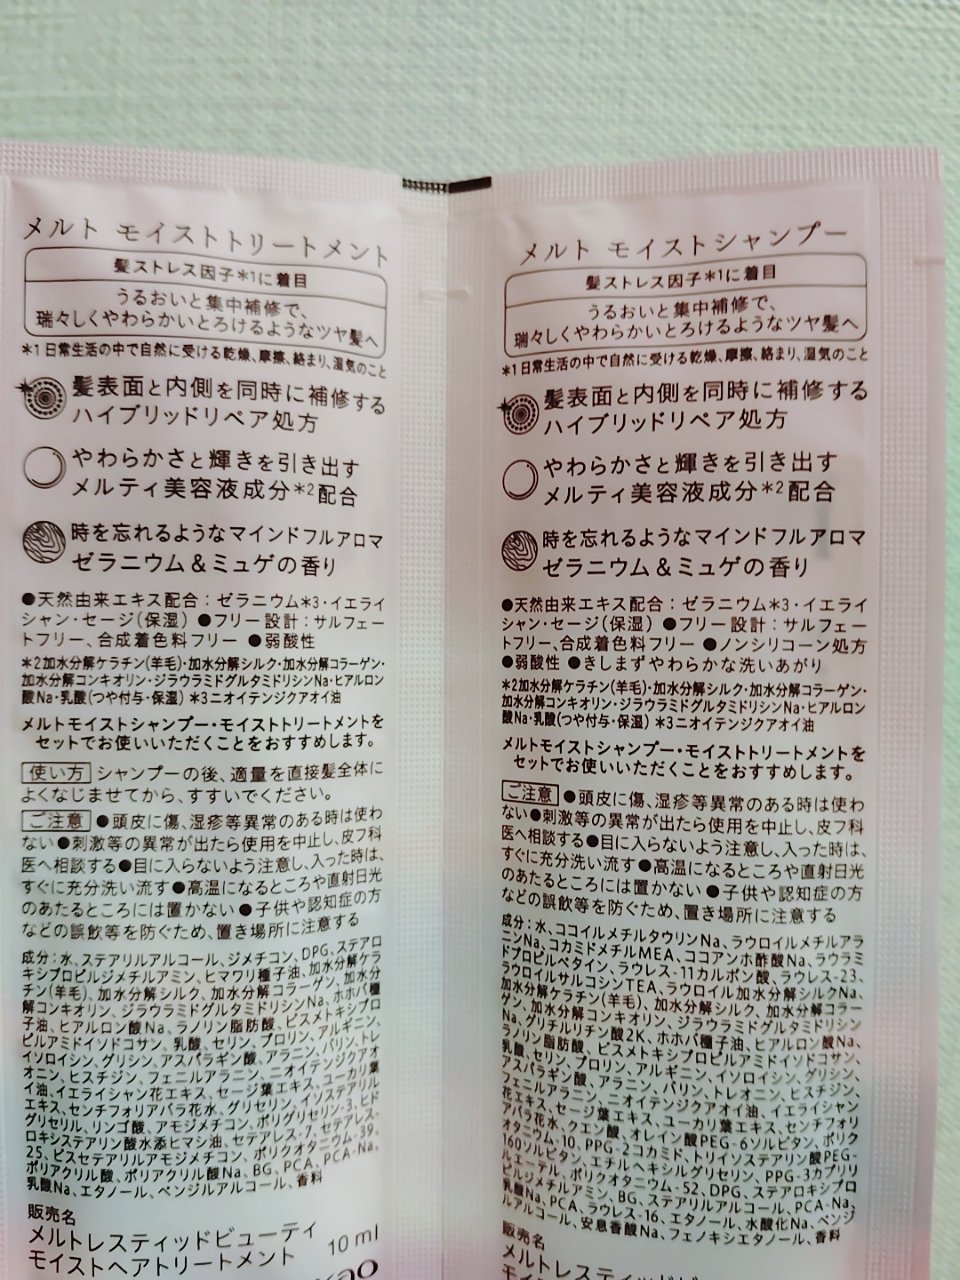 メルト モイストトリートメント
髪ストレス因子*1に着目
うるおいと集中補修で、
瑞々しくやわらかいとろけるようなツヤ髪へ
*1 日常生活の中で自然に受ける乾燥、摩擦、絡まり、湿気のこと
髪表面と内側を同時に補修する
ハイブリッドリペア処方
やわらかさと輝きを引き出す
メルティ美容液成分*2配合
時を忘れるようなマインドフルアロマ
ゼラニウム&ミュゲの香り
●天然由来エキス配合:ゼラニウム*3・イエライ
シャン・セージ(保湿) ●フリー設計:サルフェー
トフリー、合成着色料フリー ●弱酸性
*2加水分解ケラチン(羊毛)・加水分解シルク・加水分解コラーゲン・
加水分解コンキオリン・ジラウラミドグルタミドリシンNa・ヒアルロン
酸Na・乳酸(つや付与・保湿) *3ニオイテンジクアオイ油
メルトモイストシャンプー・モイストトリートメントを
セットでお使いいただくことをおすすめします。
使い方 シャンプーの後、適量を直接髪全体に
よくなじませてから、すすいでください。
ご注意 ●頭皮に傷、湿疹等異常のある時は使わ
ない●刺激等の異常が出たら使用を中止し、皮フ科
医へ相談する●目に入らないよう注意し、入った時は、
すぐに充分洗い流す●高温になるところや直射日光
のあたるところには置かない ●子供や認知症の方
などの誤飲等を防ぐため、置き場所に注意する
成分:水、ステアリルアルコール、ジメチコン、DPG、ステアロ
キシプロピルジメチルアミン、ヒマワリ種子油、加水分解ケラ
チン(羊毛)、加水分解シルク、加水分解コラーゲン、加水分
解コンキオリン、ジラウラミドグルタミドリシンNa、ホホバ種
子油、ヒアルロン酸Na、ラノリン脂肪酸、ビスメトキシプロ
ピルアミドイソドコサン、乳酸、セリン、プロリン、アルギニン、
イソロイシン、グリシン、アスパラギン酸、アラニン、バリン、トレ
オニン、ヒスチジン、フェニルアラニン、ニオイテンジクアオ
イ油、イエライシャン花エキス、セージ葉エキス、ユーカリ葉
エキス、センチフォリアバラ花水、グリセリン、イソステアリル
グリセリル、リンゴ酸、アモジメチコン、ポリグリセリン-3、ヒド
ロキシステアリン酸水添ヒマシ油、セテアレス-7、セテアレス-
25、ビスセテアリルアモジメチコン、ポリクオタニウム-39、
ポリアクリル酸、ポリアクリル酸Na、BG、PCA、PCA-Na、
乳酸Na、エタノール、ベンジルアルコール、香料
販売名
メルトレスティッドビューティ
モイストヘアトリートメント 10ml
kao
メルト モイストシャンプー
髪ストレス因子*1に着目
うるおいと集中補修で、
瑞々しくやわらかいとろけるようなツヤ髪へ
*1 日常生活の中で自然に受ける乾燥、摩擦、絡まり、湿気のこと
髪表面と内側を同時に補修する
ハイブリッドリペア処方
やわらかさと輝きを引き出す
メルティ美容液成分*2配合
時を忘れるようなマインドフルアロマ
ゼラニウム&ミュゲの香り
●天然由来エキス配合:ゼラニウム*3・イエライ
シャン・セージ(保湿) ●フリー設計:サルフェー
トフリー、合成着色料フリー ●ノンシリコーン処方
●弱酸性 ●きしまずやわらかな洗いあがり
*2加水分解ケラチン(羊毛)・加水分解シルク・加水分解コラーゲン・
加水分解コンキオリン・ジラウラミドグルタミドリシンNa・ヒアルロン
酸Na・乳酸(つや付与・保湿) *3ニオイテンジクアオイ油
メルトモイストシャンプー・モイストトリートメントを
セットでお使いいただくことをおすすめします。
ご注意 ●頭皮に傷、湿疹等異常のある時は使わ
ない●刺激等の異常が出たら使用を中止し、皮フ科
医へ相談する●目に入らないよう注意し、入った時は、
すぐに充分洗い流す●高温になるところや直射日光
のあたるところには置かない ●子供や認知症の方
などの誤飲等を防ぐため、置き場所に注意する
成分:水、ココイルメチルタウリンNa、ラウロイルメチルアラ
ニンNa、コカミドメチルMEA、ココアンホ酢酸Na、ラウラミ
ドプロピルベタイン、ラウレス-11カルボン酸、ラウレス-23、
ラウロイルサルコシンTEA、ラウロイル加水分解シルクNa、
加水分解ケラチン(羊毛)、加水分解シルク、加水分解コラー
ゲン、加水分解コンキオリン、ジラウラミドグルタミドリシン
Na、グリチルリチン酸2K、ホホバ種子油、ヒアルロン酸Na、
ラノリン脂肪酸、ビスメトキシプロピルアミドイソドコサン、
乳酸、セリン、プロリン、アルギニン、イソロイシン、グリシン、
アスパラギン酸、アラニン、バリン、トレオニン、ヒスチジン、
フェニルアラニン、ニオイテンジクアオイ油、イエライシャン
花エキス、セージ葉エキス、ユーカリ葉エキス、センチフォリ
アバラ花水、クエン酸、オレイン酸PEG-6ソルビタン、ポリク
オタニウム-10、PPG-2コカミド、トリイソステアリン酸PEG-
160ソルビタン、エチルヘキシルグリセリン、PPG-3カプリリ
ルエーテル、ポリクオタニウム-52、DPG、ステアロキシプロ
ピルジメチルアミン、BG、ステアリルアルコール、PCA-Na、
乳酸Na、PCA、ラウレス-16、エタノール、水酸化Na、ベンジ
ルアルコール、安息香酸Na、フェノキシエタノール、香料
販売名